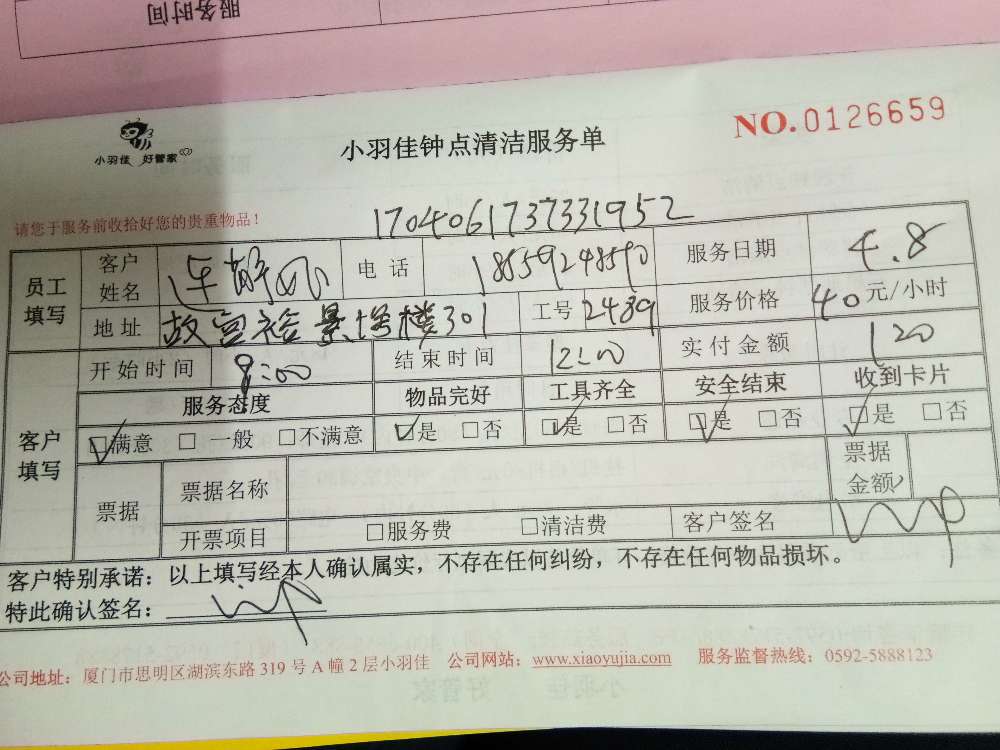 服务时间
小羽佳 好管家
小羽佳钟点清洁服务单
NO.0126659
请您于服务前收拾好您的贵重物品！
1704061737331952
员工填写 客户姓名 连 电话 18559248590 服务日期 4.8
地址 故宫裕景 楼301 工号 2489 服务价格 40元/小时
开始时间 9:00 结束时间 12:00 实付金额 120
客户填写 服务态度 物品完好 工具齐全 安全结束 收到卡片
☑满意 □一般 □不满意 ☑是 □否 ☑是 □否 ☑是 □否 ☑是 □否
票据 票据名称 票据金额
开票项目 □服务费 □清洁费 客户签名
客户特别承诺：以上填写经本人确认属实，不存在任何纠纷，不存在任何物品损坏。
特此确认签名：
公司地址：厦门市思明区湖滨东路 319 号 A 幢 2 层小羽佳 公司网站：www.xiaoyujia.com 服务监督热线：0592-5888123